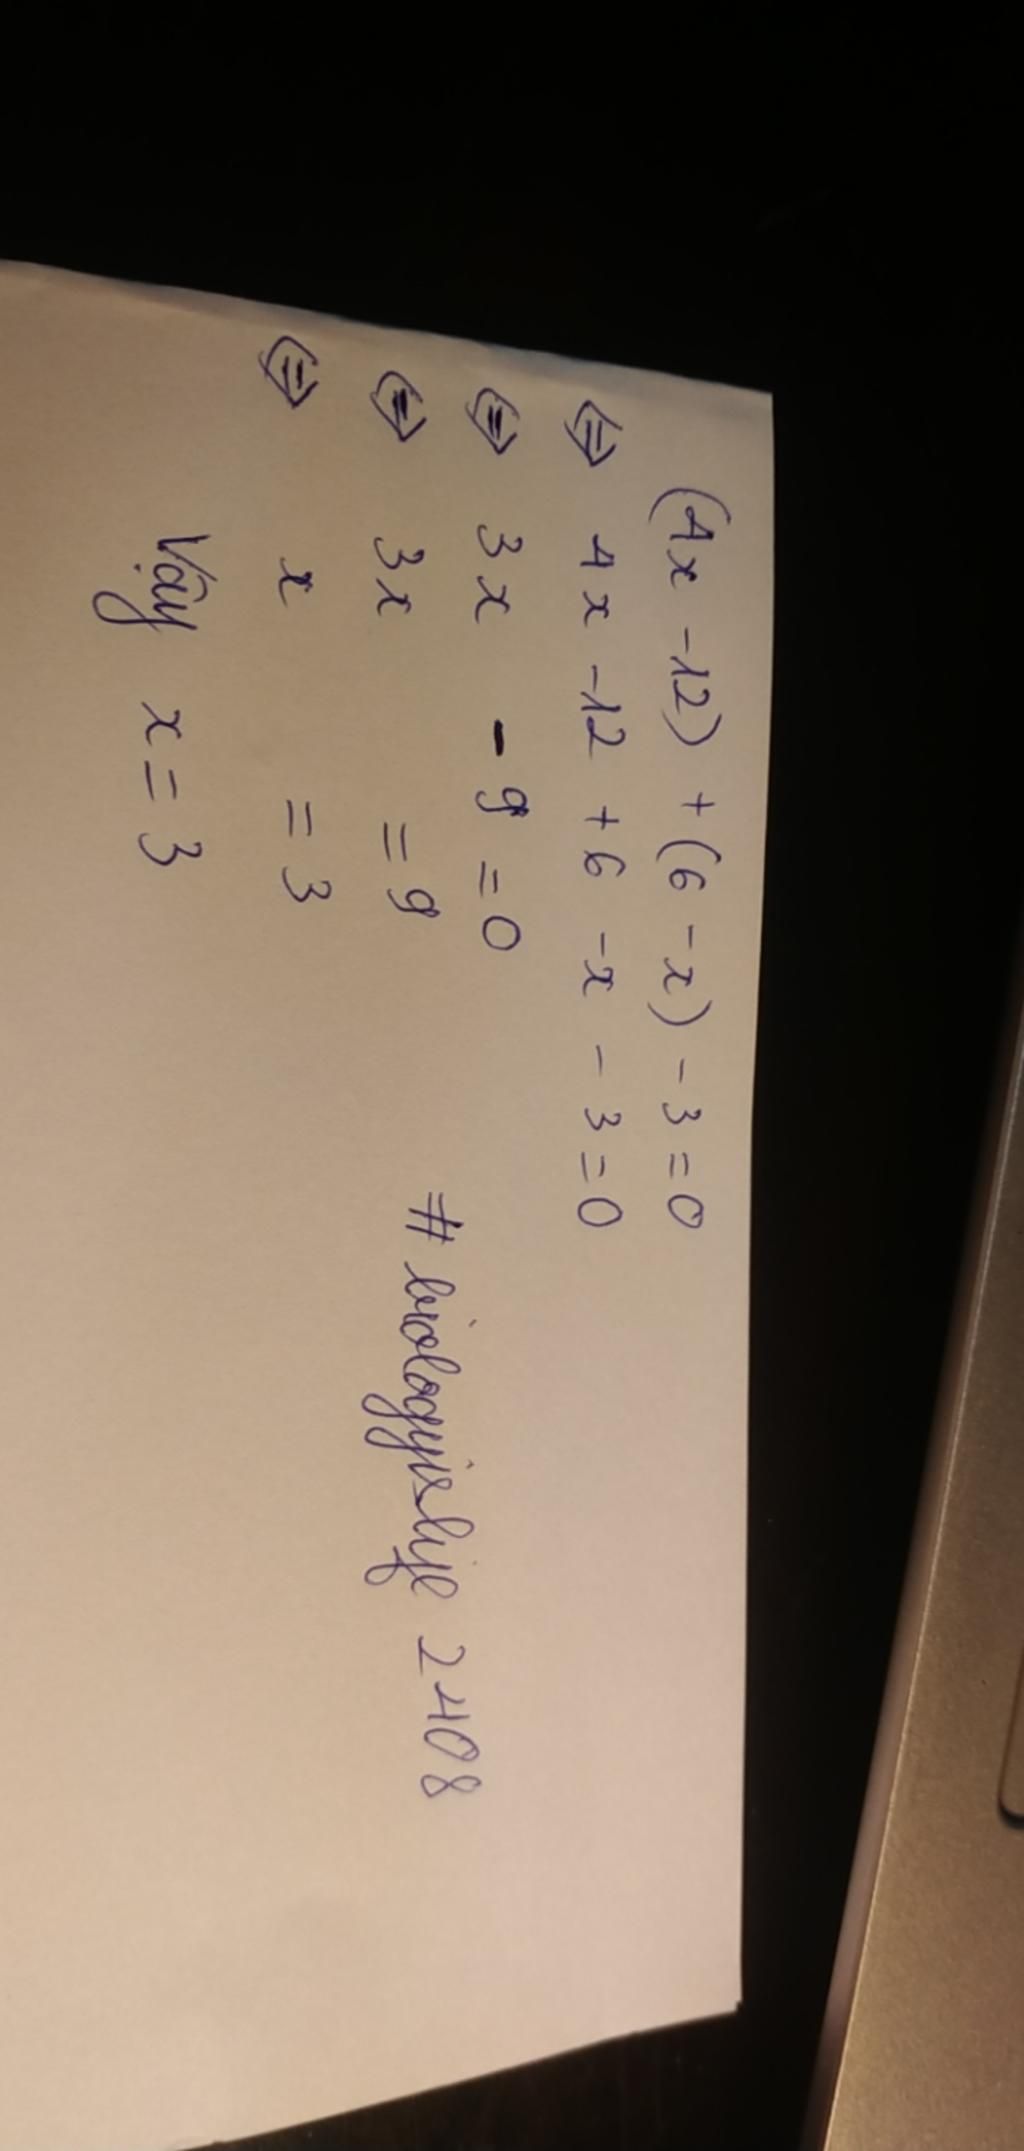 (4x -12) + (6 -x) - 3 = 0
⇔ 4x -12 + 6 -x - 3 = 0
⇔ 3x - 9 = 0
⇔ 3x = 9
⇔ x = 3
Vậy x = 3
# biologyislife 2408